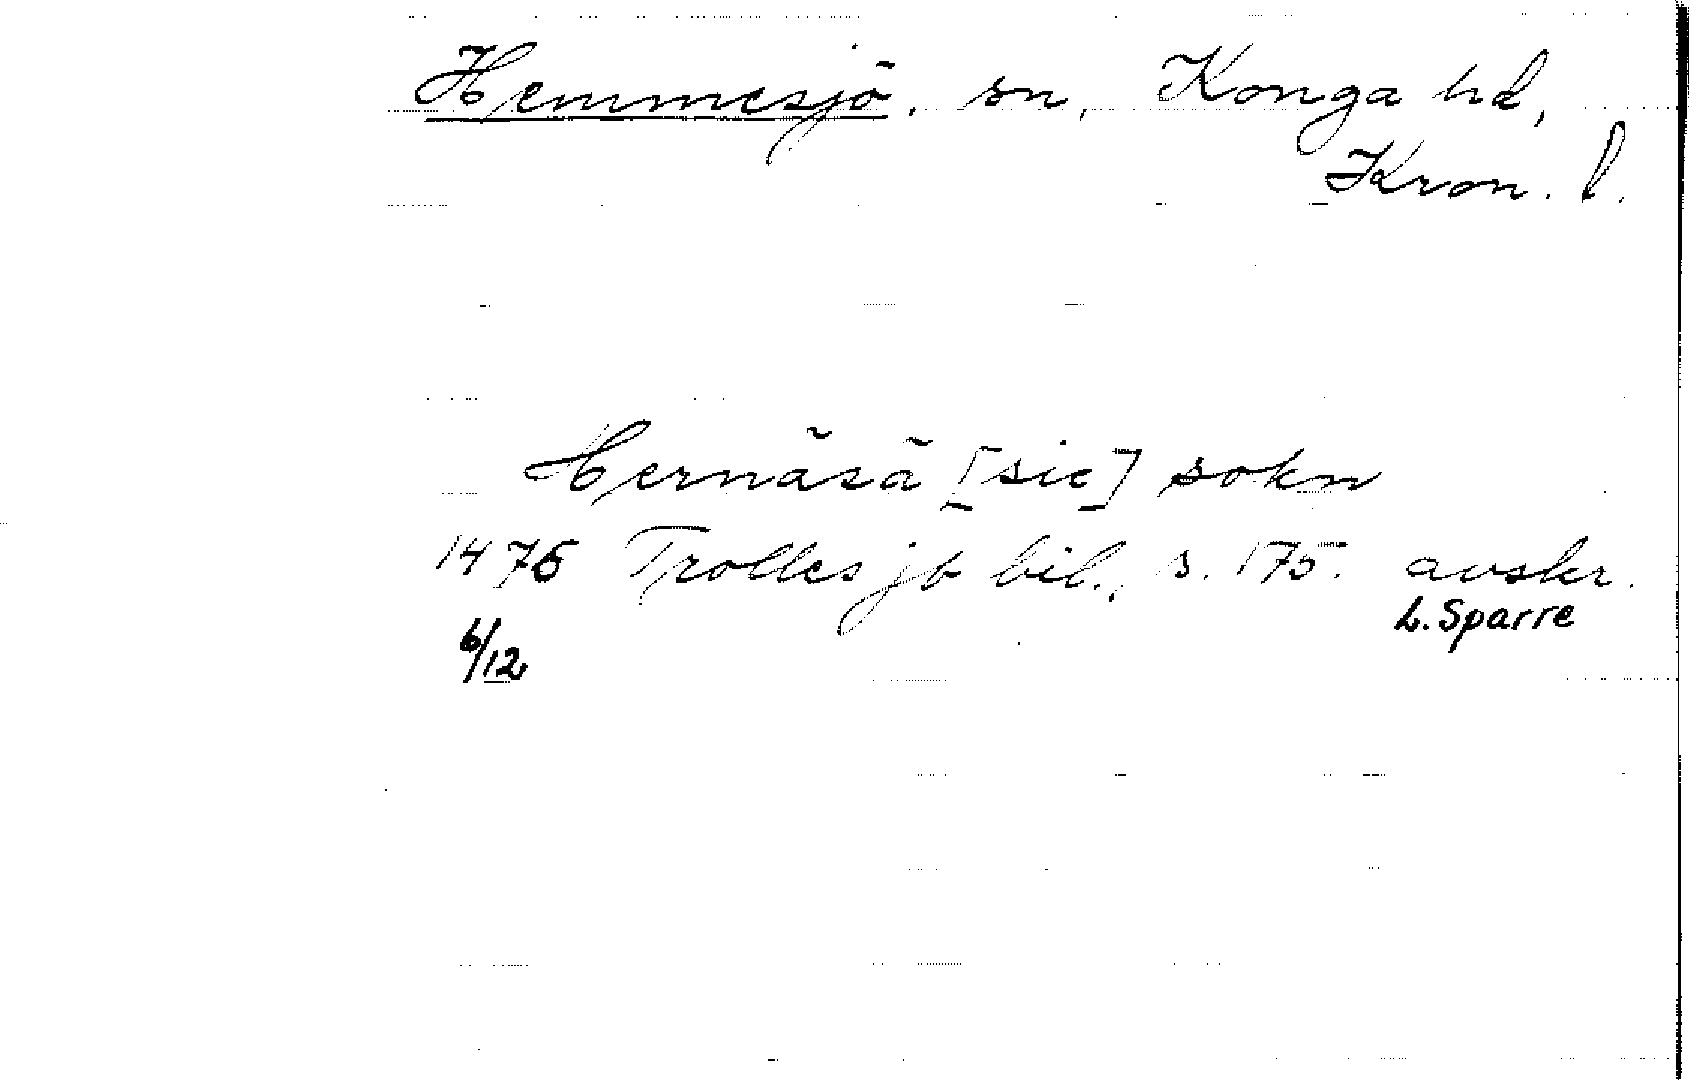 Hemmesjö, sn, Konga hd,
Kron. l.
Hernäsä [sic] sokn
1476 Trolles jb bil., s. 175. avskr.
L. Sparre
6/12